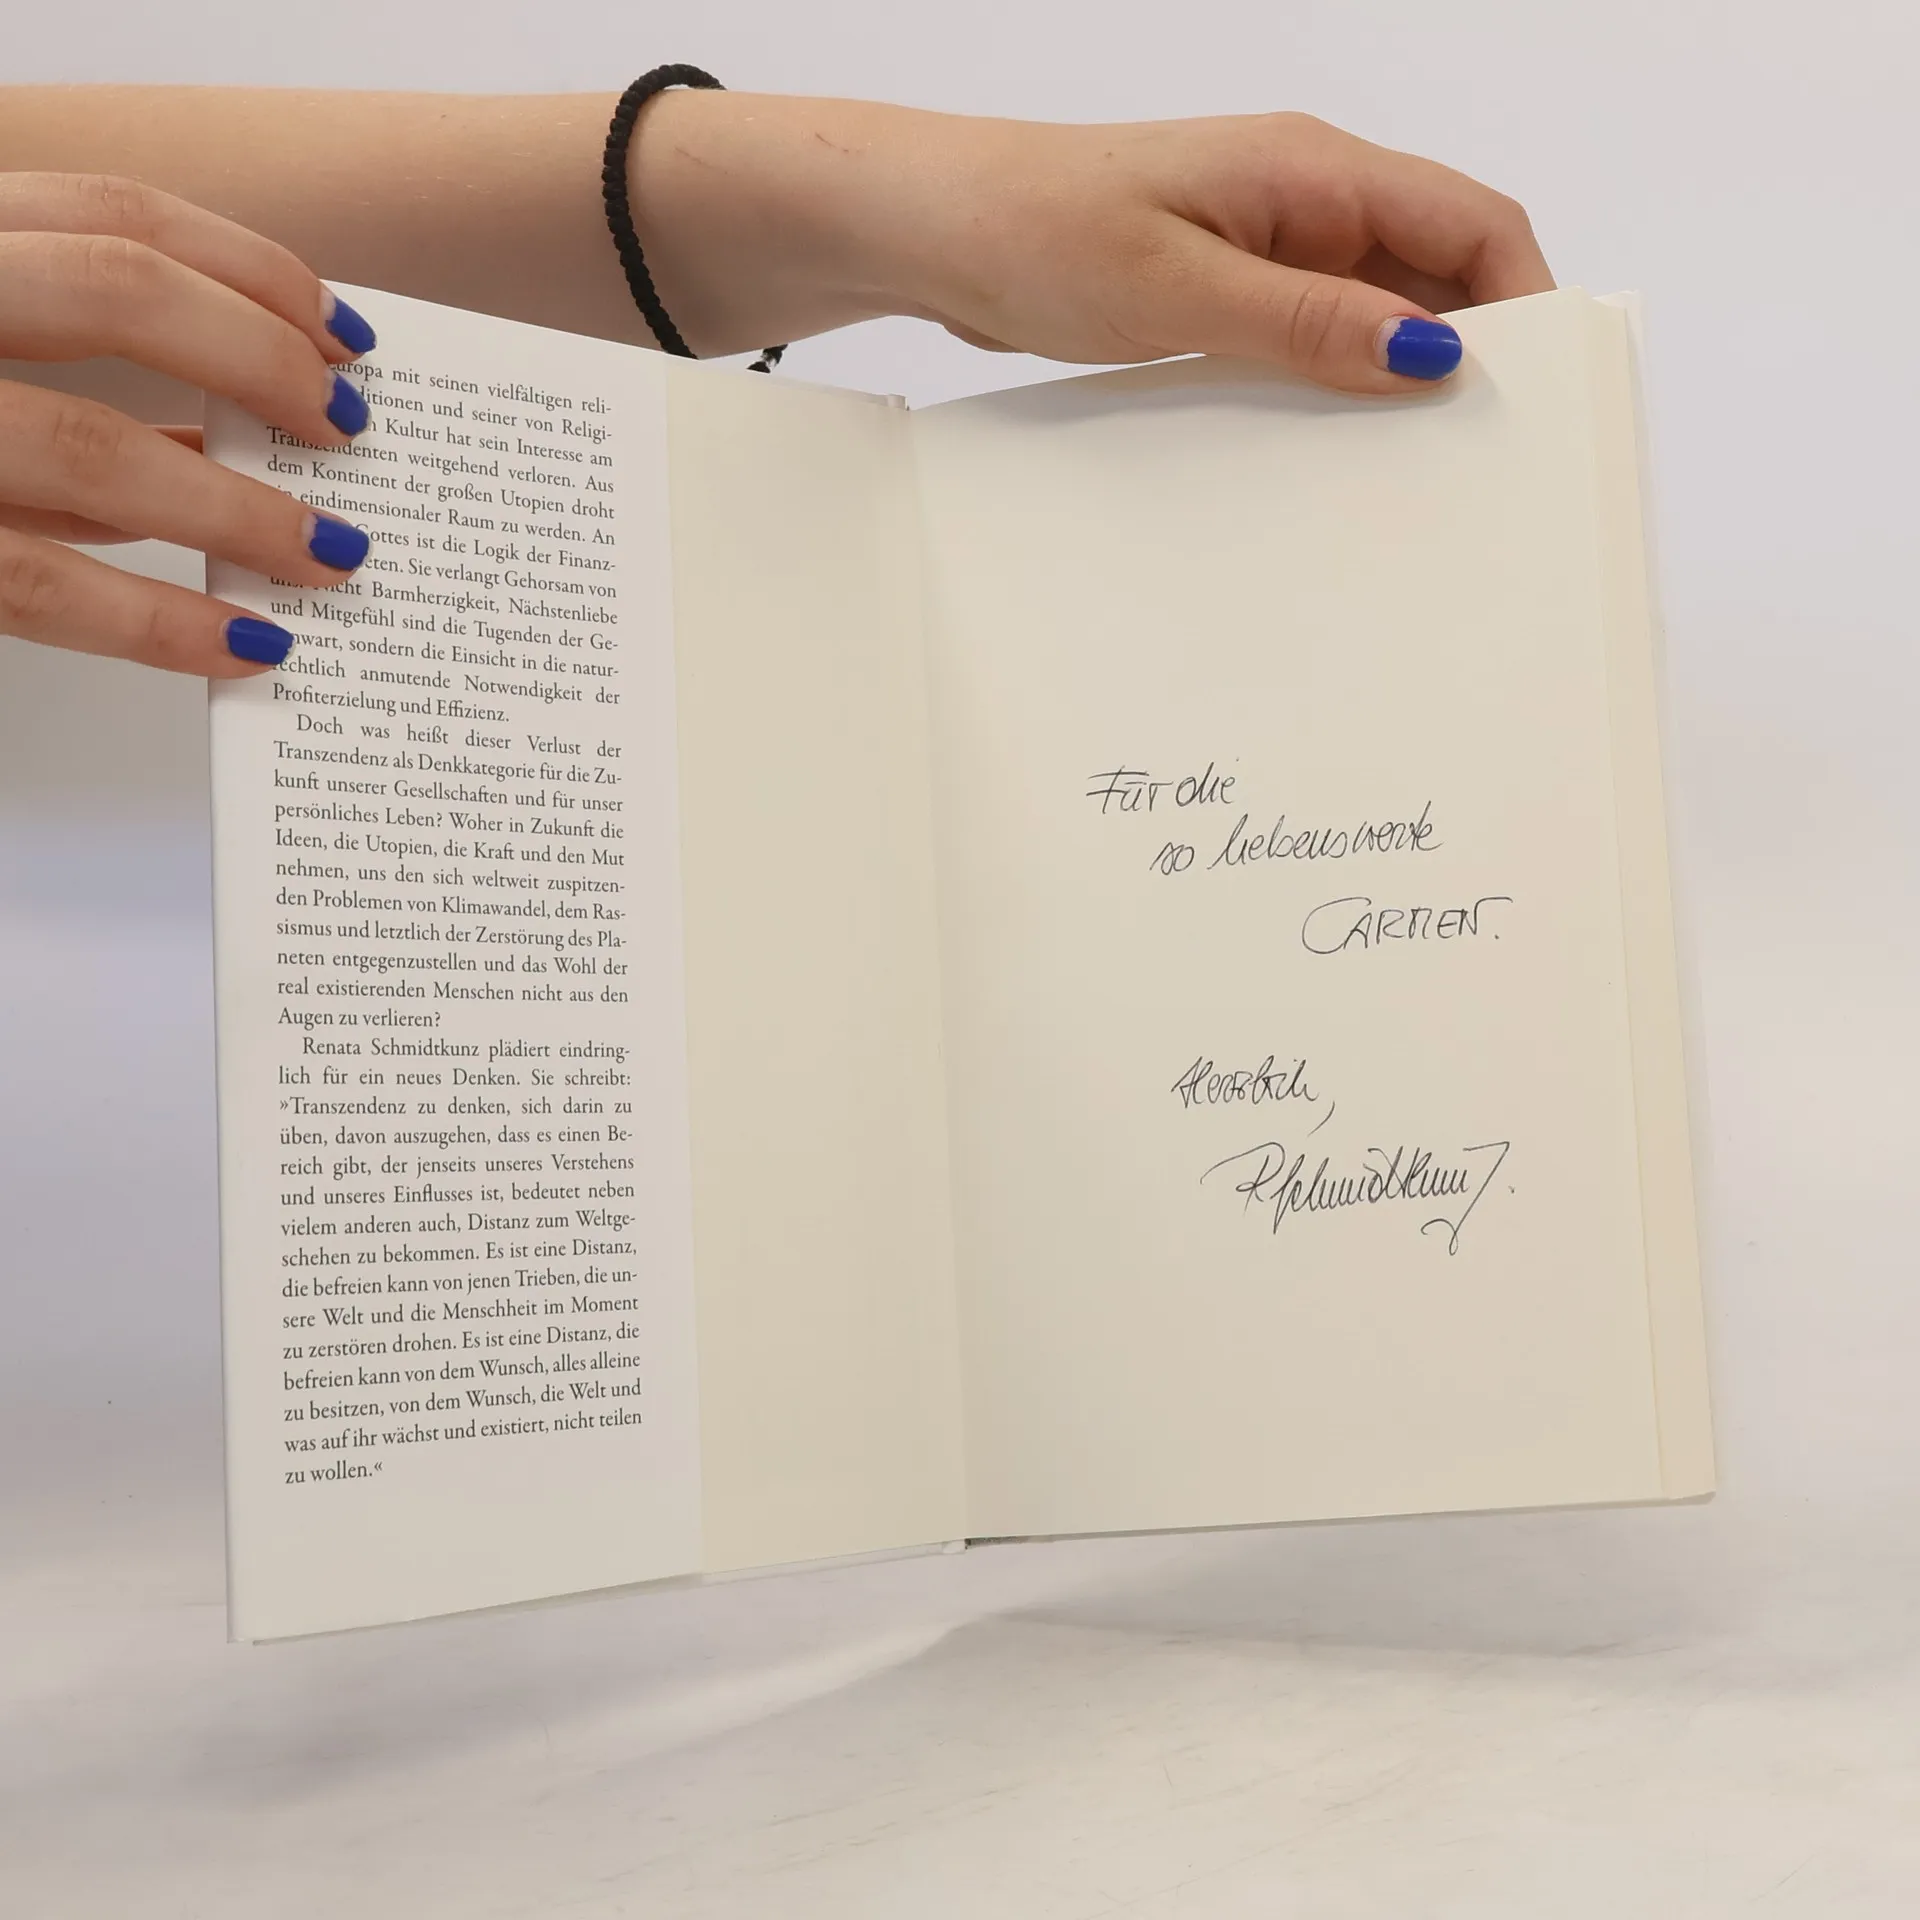 europa mit seinen vielfältigen reli-
ditionen und seiner von Religi-
Kultur hat sein Interesse am
Transzendenten weitgehend verloren. Aus
dem Kontinent der großen Utopien droht
eindimensionaler Raum zu werden. An
Gottes ist die Logik der Finanz-
eten. Sie verlangt Gehorsam von
uns. Nicht Barmherzigkeit, Nächstenliebe
und Mitgefühl sind die Tugenden der Ge-
nwart, sondern die Einsicht in die natur-
rechtlich anmutende Notwendigkeit der
Profiterzielung und Effizienz.
Doch was heißt dieser Verlust der
Transzendenz als Denkkategorie für die Zu-
kunft unserer Gesellschaften und für unser
persönliches Leben? Woher in Zukunft die
Ideen, die Utopien, die Kraft und den Mut
nehmen, uns den sich weltweit zuspitzen-
den Problemen von Klimawandel, dem Ras-
sismus und letztlich der Zerstörung des Pla-
neten entgegenzustellen und das Wohl der
real existierenden Menschen nicht aus den
Augen zu verlieren?
Renata Schmidtkunz plädiert eindring-
lich für ein neues Denken. Sie schreibt:
»Transzendenz zu denken, sich darin zu
üben, davon auszugehen, dass es einen Be-
reich gibt, der jenseits unseres Verstehens
und unseres Einflusses ist, bedeutet neben
vielem anderen auch, Distanz zum Weltge-
schehen zu bekommen. Es ist eine Distanz,
die befreien kann von jenen Trieben, die un-
sere Welt und die Menschheit im Moment
zu zerstören drohen. Es ist eine Distanz, die
befreien kann von dem Wunsch, alles alleine
zu besitzen, von dem Wunsch, die Welt und
was auf ihr wächst und existiert, nicht teilen
zu wollen.«
Für die
so liebenswerte
CARMEN.
Herzlich,
RSchmidtkunz.